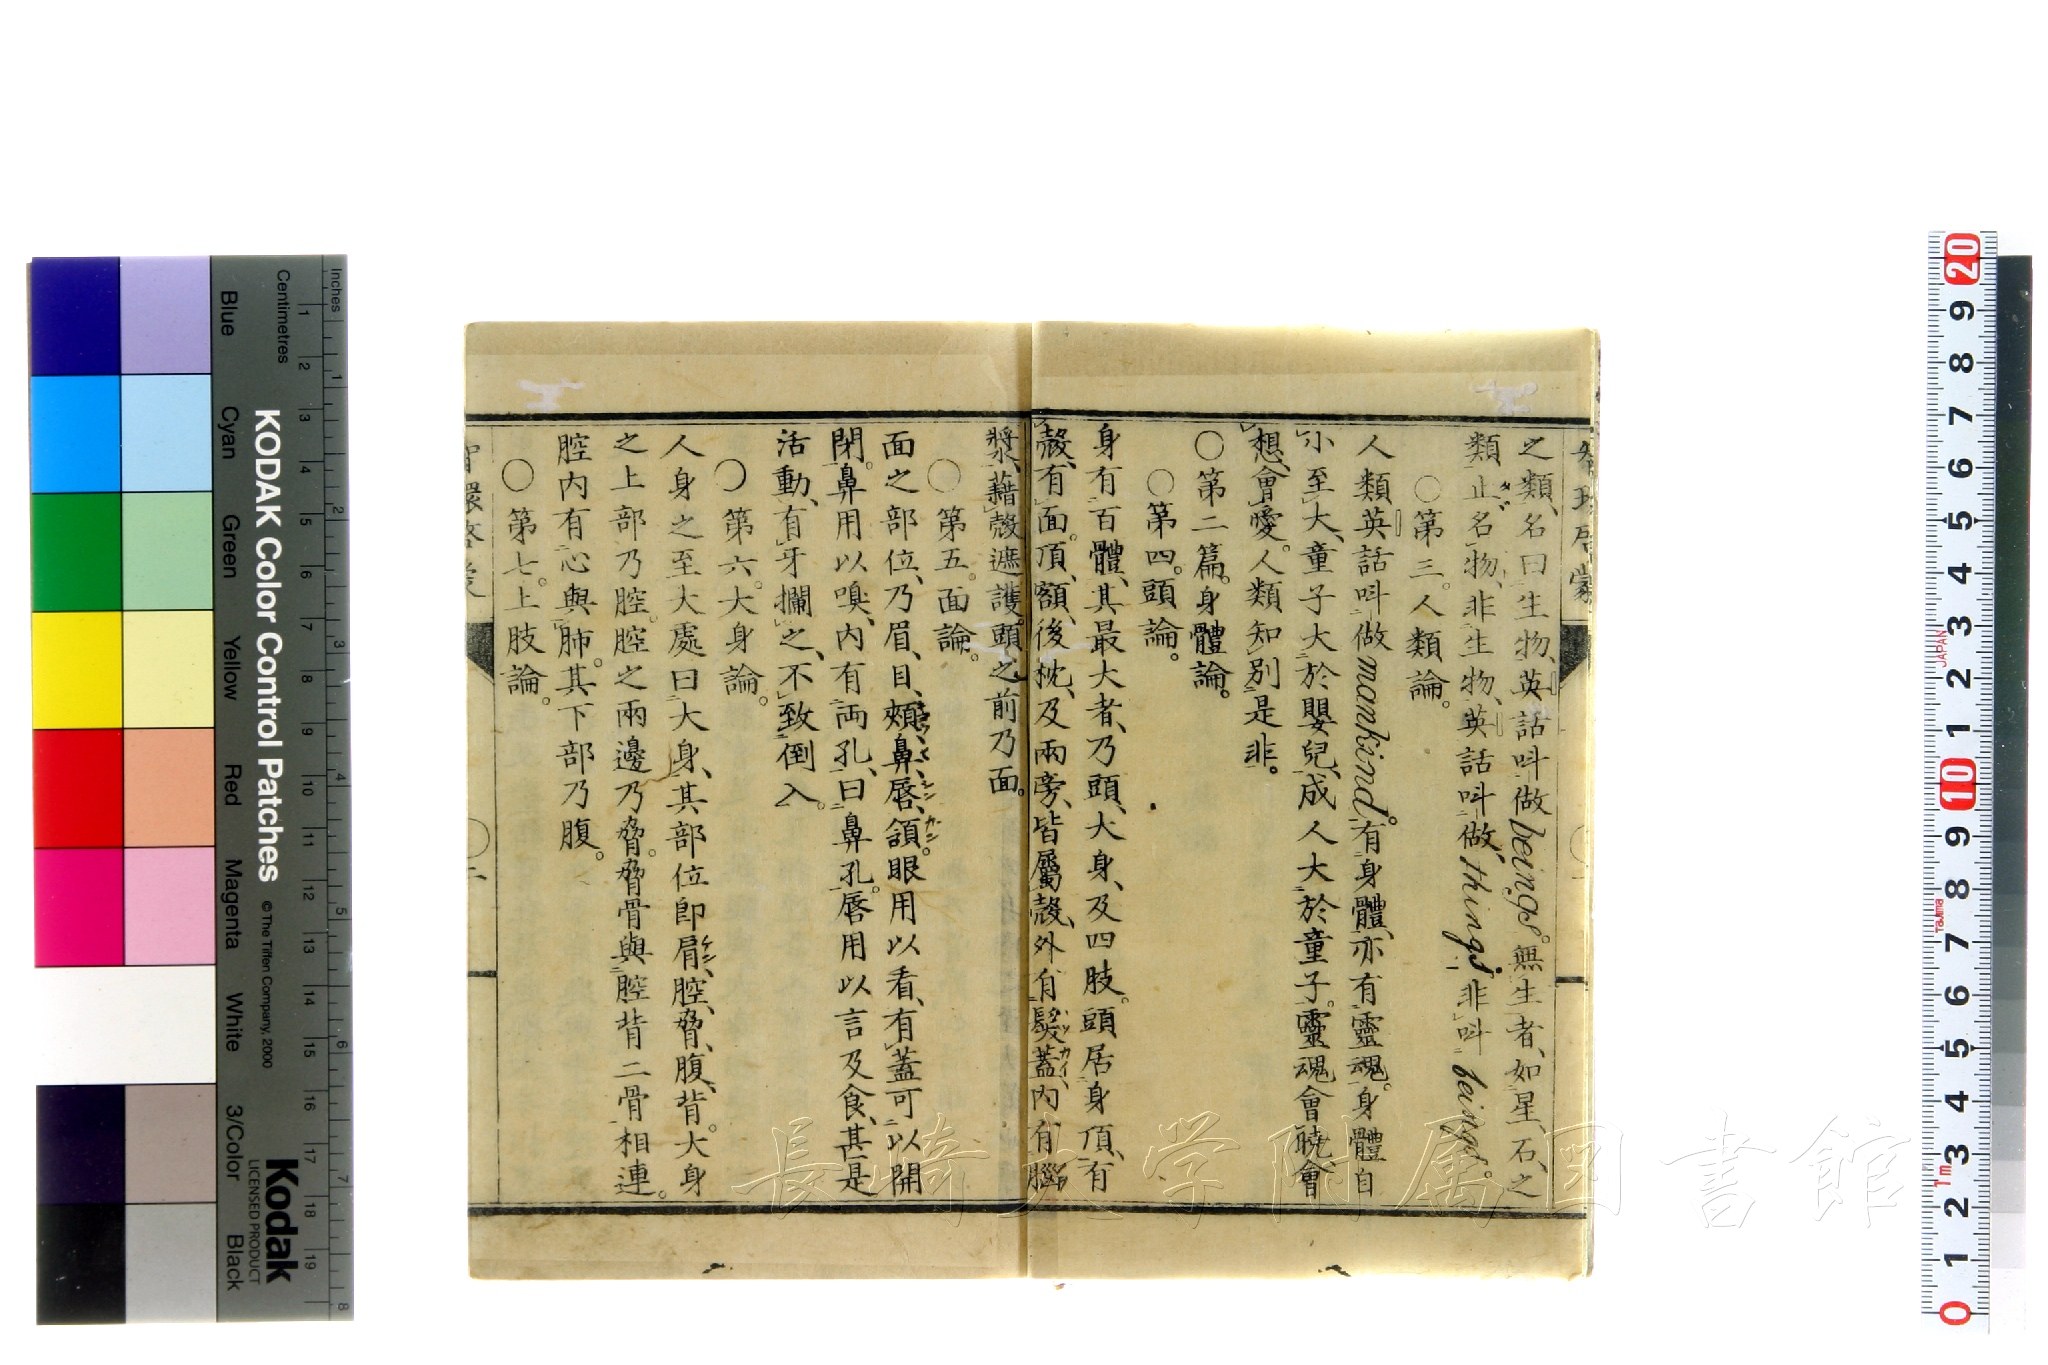 之類、名曰生物、英話呌做beings。無生者、如星、石、之
類、止名物、非生物、英話呌做things、非呌beings。
○第三。人類論。
人類英話呌做mankind。有身體、亦有靈魂。身體自
小至大、童子大於嬰兒、成人大於童子。靈魂會曉、會
想、會愛。人類知別是非。
○第二篇。身體論。
○第四。頭論。
身有百體、其最大者、乃頭、大身、及四肢。頭居身頂、有
殼、有面。頂、額、後枕、及兩旁、皆屬殼、外有髮蓋、內有腦
漿、藉殼遮護。頭之前乃面。
○第五。面論。
面之部位、乃眉、目、頰、鼻、唇、頷。眼用以看、有蓋可以開
閉。鼻用以嗅、內有両孔、曰鼻孔。唇用以言及食、其是
活動、有牙攔之、不致倒入。
○第六。大身論。
人身之至大處曰大身、其部位卽肩、腔、脅、腹、背。大身
之上部乃腔。腔之兩邊乃脅。脅骨與腔背二骨相連。
腔內有心與肺。其下部乃腹。
○第七。上肢論。
KODAK Color Control Patches
© The Tiffen Company, 2000
Kodak
LICENSED PRODUCT
Inches
Centimetres
Blue
Cyan
Green
Yellow
Red
Magenta
White
3/Color
Black
1 2 3 4 5 6 7 8
1 2 3 4 5 6 7 8 9 10 11 12 13 14 15 16 17 18 19
20 9 8 7 6 5 4 3 2 1 10 9 8 7 6 5 4 3 2 1 0
JAPAN
Tajima
1m
長崎大学附属図書館